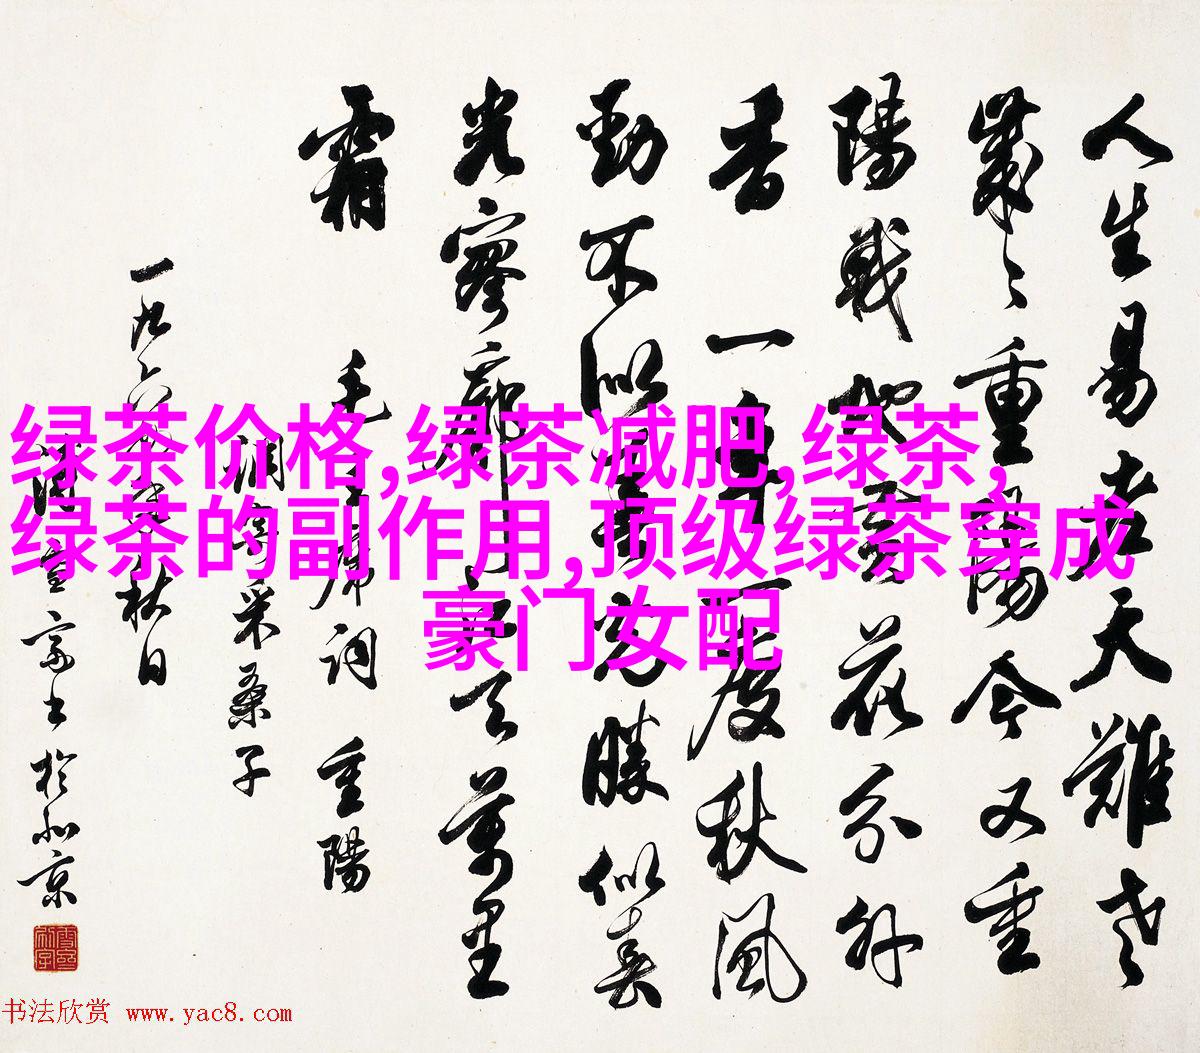 人生易老天難老
歲〻重陽今又重
陽戰地黃花分外
香 一年一度秋風
勁不似春光勝似春
光寥廓江天萬里
霜 毛主席詞 重陽
調寄采桑子
一九六秋日
書於北京
绿茶价格,绿茶减肥,绿茶,
绿茶的副作用,顶级绿茶穿成
豪门女配
书法欣赏 www.yac8.com